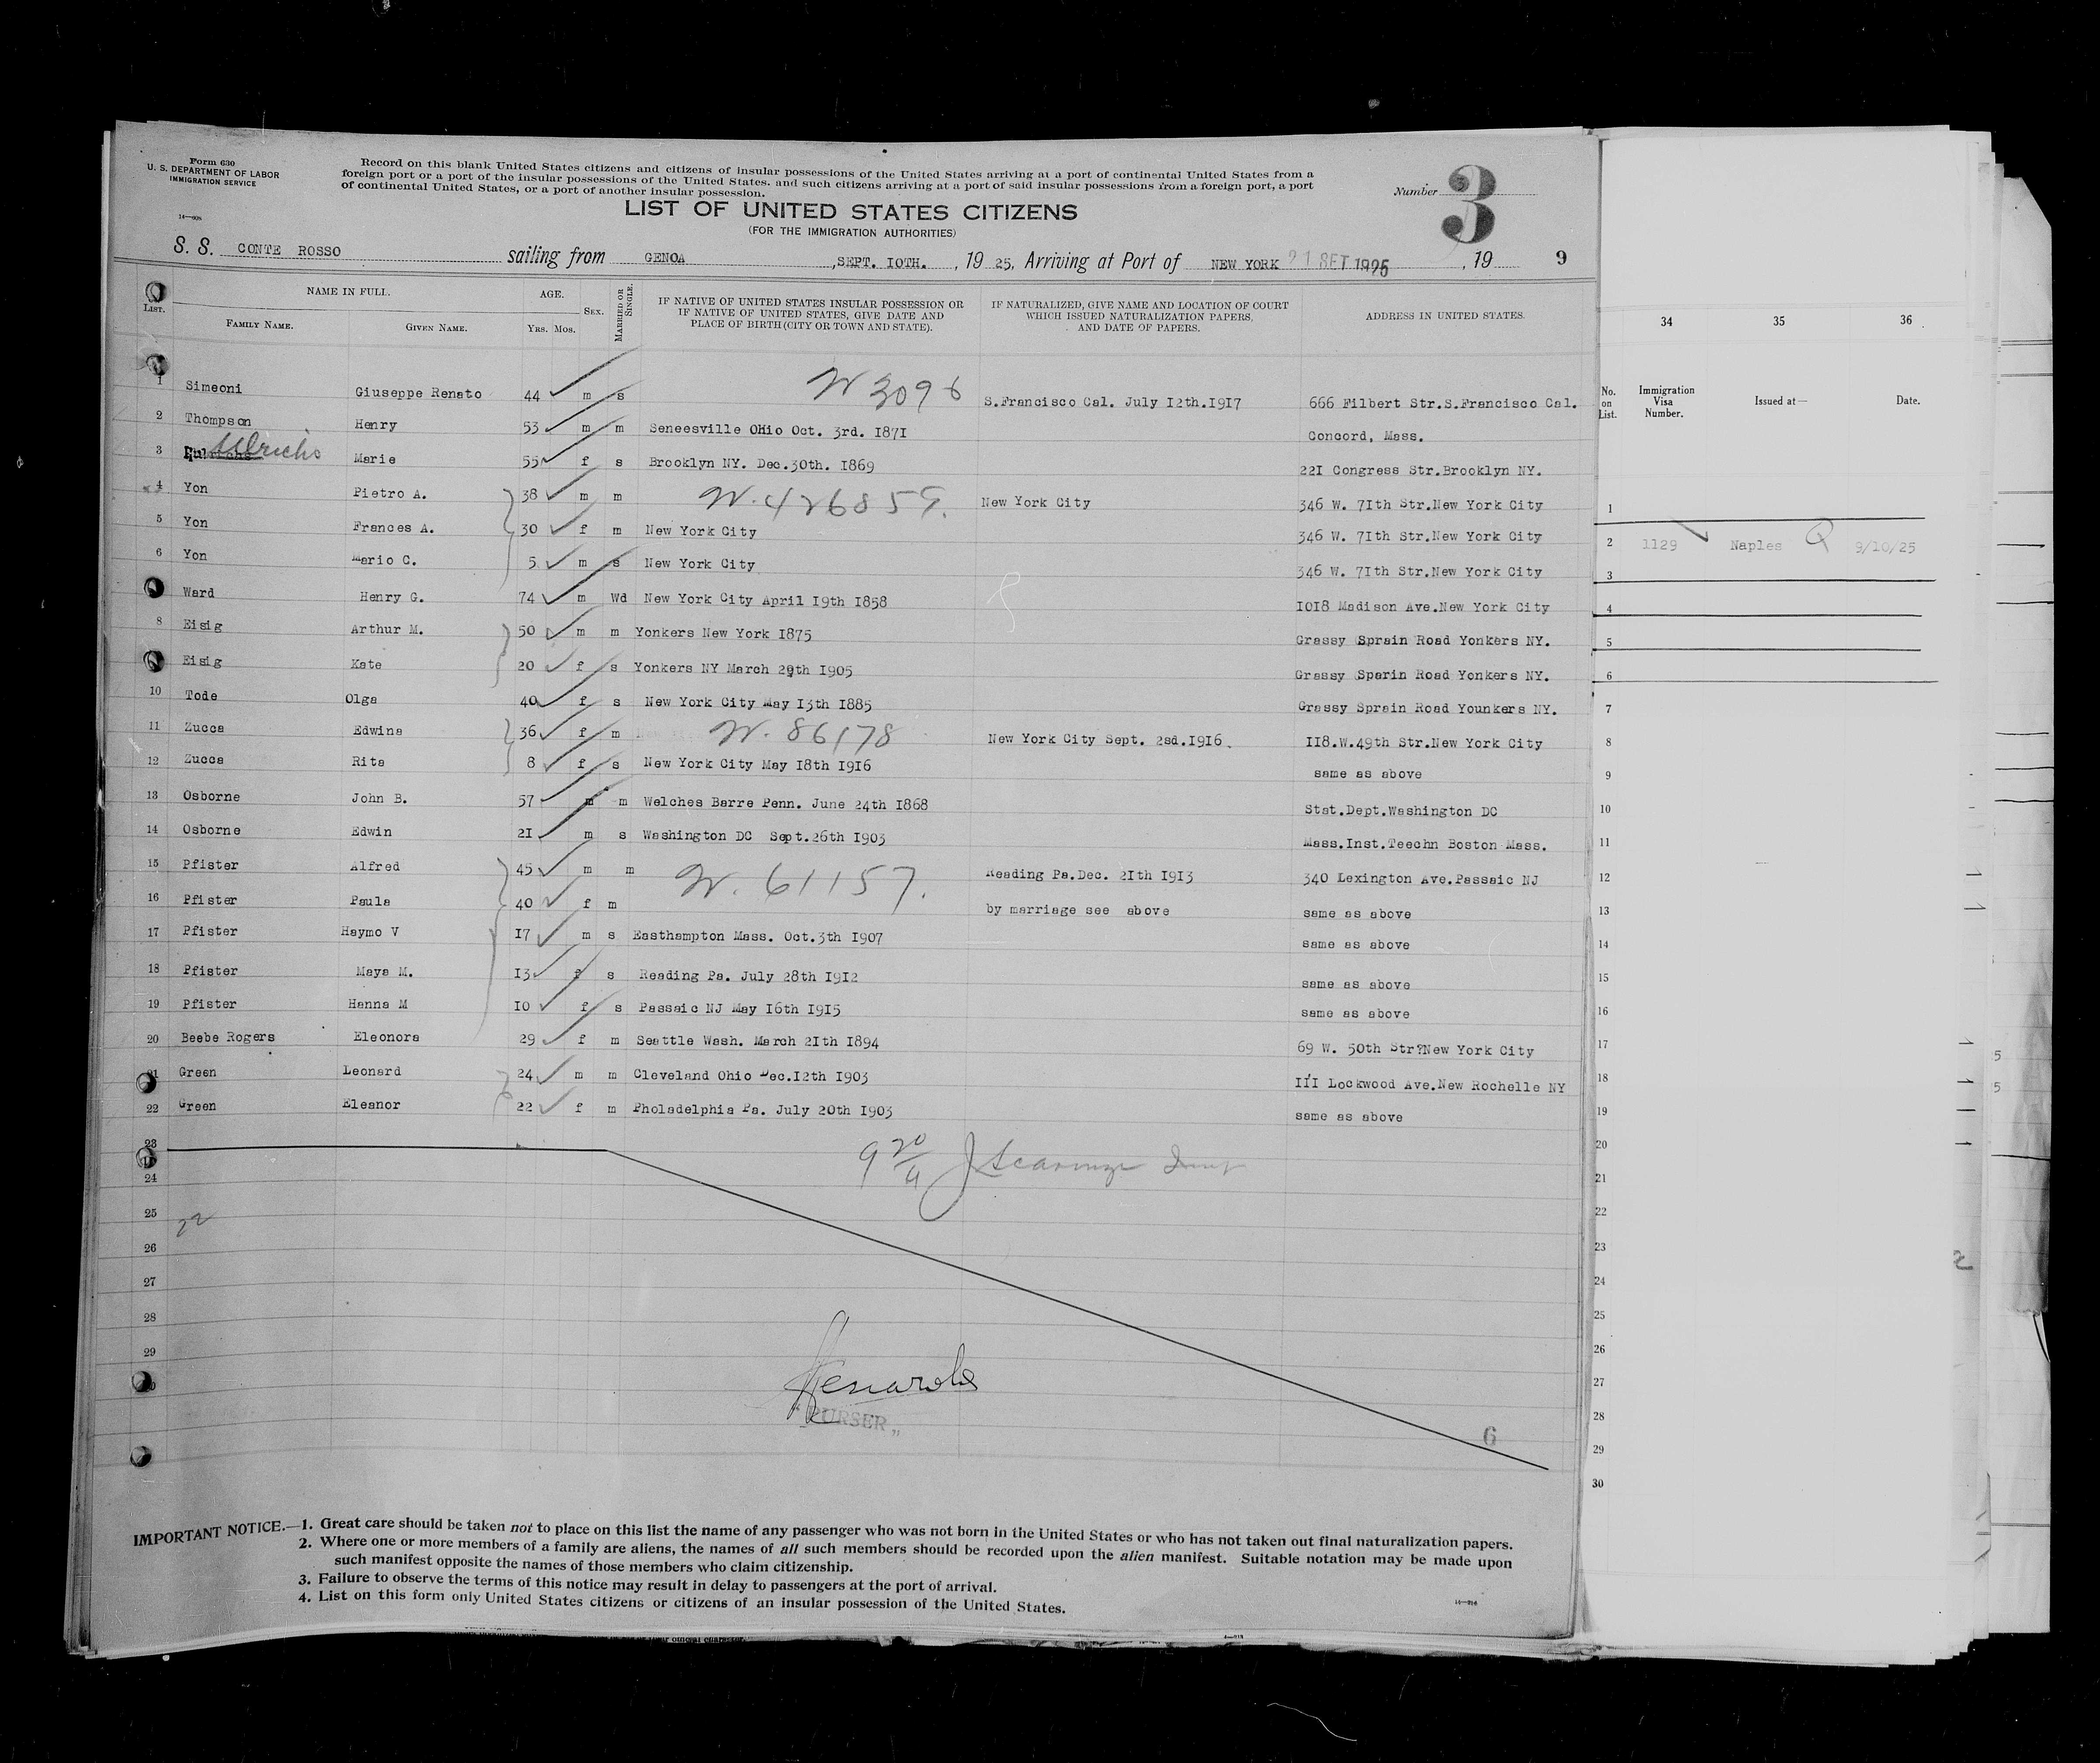 Form 630
U. S. DEPARTMENT OF LABOR
IMMIGRATION SERVICE
14—608
Record on this blank United States citizens and citizens of insular possessions of the United States arriving at a port of continental United States from a
foreign port or a port of the insular possessions of the United States. and such citizens arriving at a port of said insular possessions from a foreign port, a port
of continental United States, or a port of another insular possession.
Number 3
LIST OF UNITED STATES CITIZENS
(FOR THE IMMIGRATION AUTHORITIES)
S. S. CONTE ROSSO sailing from GENOA, SEPT. IOTH., 19 25, Arriving at Port of NEW YORK 21 SET 1925, 19 9
LIST. NAME IN FULL. AGE. SEX. MARRIED OR SINGLE. IF NATIVE OF UNITED STATES INSULAR POSSESSION OR IF NATIVE OF UNITED STATES, GIVE DATE AND PLACE OF BIRTH (CITY OR TOWN AND STATE). IF NATURALIZED, GIVE NAME AND LOCATION OF COURT WHICH ISSUED NATURALIZATION PAPERS, AND DATE OF PAPERS. ADDRESS IN UNITED STATES.
FAMILY NAME. GIVEN NAME. YRS. MOS.
1 Simeoni Giuseppe Renato 44 m s W 3096 S.Francisco Cal. July I2th.I9I7 666 Filbert Str.S.Francisco Cal.
2 Thompson Henry 53 m m Seneesville OHio Oct. 3rd. I87I Concord, Mass.
3 Ulrichs Marie 55 f s Brooklyn NY. Dec.30th. I869 22I Congress Str.Brooklyn NY.
4 Yon Pietro A. 38 m m W. 426859. New York City 346 W. 7Ith Str.New York City
5 Yon Frances A. 30 f m New York City 346 W. 7Ith Str.New York City
6 Yon Mario C. 5 m s New York City 346 W. 7Ith Str.New York City
Ward Henry G. 74 m Wd New York City April I9th I858 IOI8 Madison Ave.New York City
8 Eisig Arthur M. 50 m m Yonkers New York I875 Grassy Sprain Road Yonkers NY.
Eisig Kate 20 f s Yonkers NY March 29th I905 Grassy Sparin Road Yonkers NY.
10 Tode Olga 40 f s New York City May I3th I885 Grassy Sprain Road Younkers NY.
11 Zucca Edwina 36 f m W. 86178 New York City Sept. 2sd.I9I6. II8.W.49th Str.New York City
12 Zucca Rita 8 f s New York City May I8th I9I6 same as above
13 Osborne John B. 57 m m Welches Barre Penn. June 24th I868 Stat.Dept.Washington DC
14 Osborne Edwin 2I m s Washington DC Sept.26th I903 Mass.Inst.Teechn Boston Mass.
15 Pfister Alfred 45 m m W. 61157. Reading Pa.Dec. 2Ith I9I3 340 Lexington Ave.Passaic NJ
16 Pfister Paula 40 f m by marriage see above same as above
17 Pfister Haymo V I7 m s Easthampton Mass. Oct.3th I907 same as above
18 Pfister Maya M. I3 f s Reading Pa. July 28th I9I2 same as above
19 Pfister Hanna M IO f s Passaic NJ May I6th I9I5 same as above
20 Beebe Rogers Eleonora 29 f m Seattle Wash. March 2Ith I894 69 W. 50th Str?New York City
21 Green Leonard 24 m m Cleveland Ohio Dec.I2th I903 III Lockwood Ave.New Rochelle NY
22 Green Eleanor 22 f m Pholadelphia Pa. July 20th I903 same as above
23
24
25 22
26
27
28
29
"PURSER"
6
IMPORTANT NOTICE.—1. Great care should be taken not to place on this list the name of any passenger who was not born in the United States or who has not taken out final naturalization papers.
2. Where one or more members of a family are aliens, the names of all such members should be recorded upon the alien manifest. Suitable notation may be made upon
such manifest opposite the names of those members who claim citizenship.
3. Failure to observe the terms of this notice may result in delay to passengers at the port of arrival.
4. List on this form only United States citizens or citizens of an insular possession of the United States.
34 35 36
No. on List. Immigration Visa Number. Issued at— Date.
1
2 1129 Naples Q 9/10/25
3
4
5
6
7
8
9
10
11
12
13
14
15
16
17
18
19
20
21
22
23
24
25
26
27
28
29
30
5
5
2